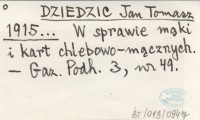 DZIEDZIC Jan Tomasz
1915... W sprawie mąki
i kart chlebowo-mącznych.
— Gaz. Podh. 3, nr 49.
BT/013/094